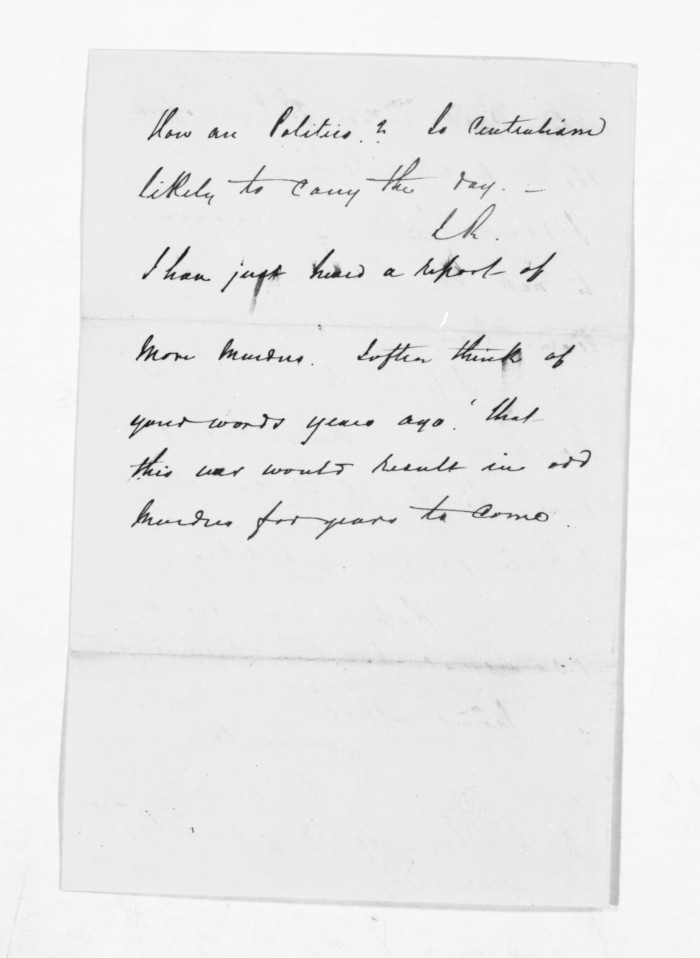 How are Politics.? Is Centralism
likely to carry the day. —
I have just heard a report of
more Murders. I often think of
your words years ago. 'that
this war would result in odd
Murders for years to come.